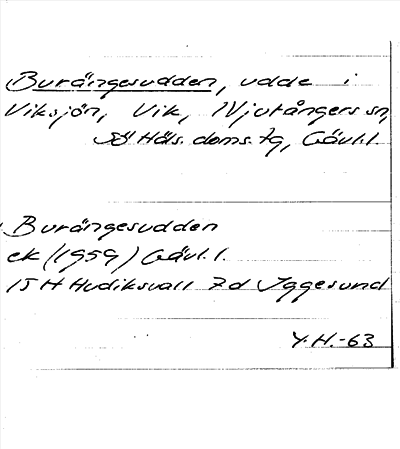 Burängesudden, udde i
Viksjön, Vik, Njutångers sn,
Sö Häls. doms. tg, Gävl. l.
Burängesudden
ek (1959) Gävl. l.
15 H Hudiksvall 7d Iggesund
Y.H.-63